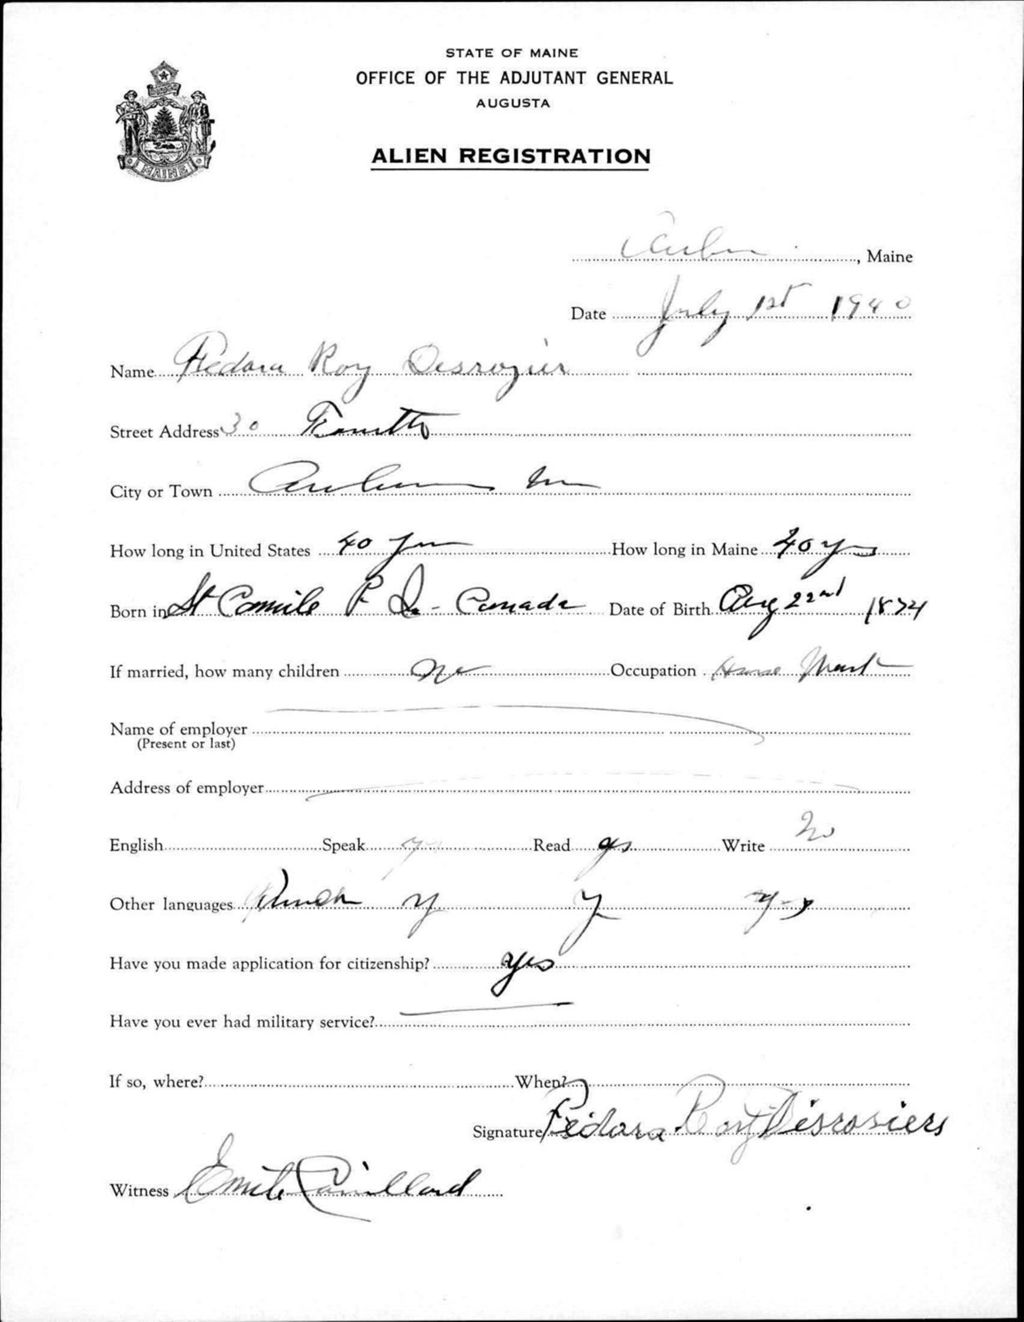 STATE OF MAINE
OFFICE OF THE ADJUTANT GENERAL
AUGUSTA
MAINE
ALIEN REGISTRATION
Auburn, Maine
Date July 1st 1940
Name Fedora Roy Desrozier
Street Address 30
City or Town Auburn Me
How long in United States 40 yrs How long in Maine 40 yrs
Born in St Camile P. Q. - Canada Date of Birth Aug 22nd 1874
If married, how many children no Occupation House Work
Name of employer
(Present or last)
Address of employer
English Speak ys Read ys Write no
Other languages French y y ys
Have you made application for citizenship? yes
Have you ever had military service?
If so, where? When?
Signature Fédora Roy Désrosiers
Witness Emile